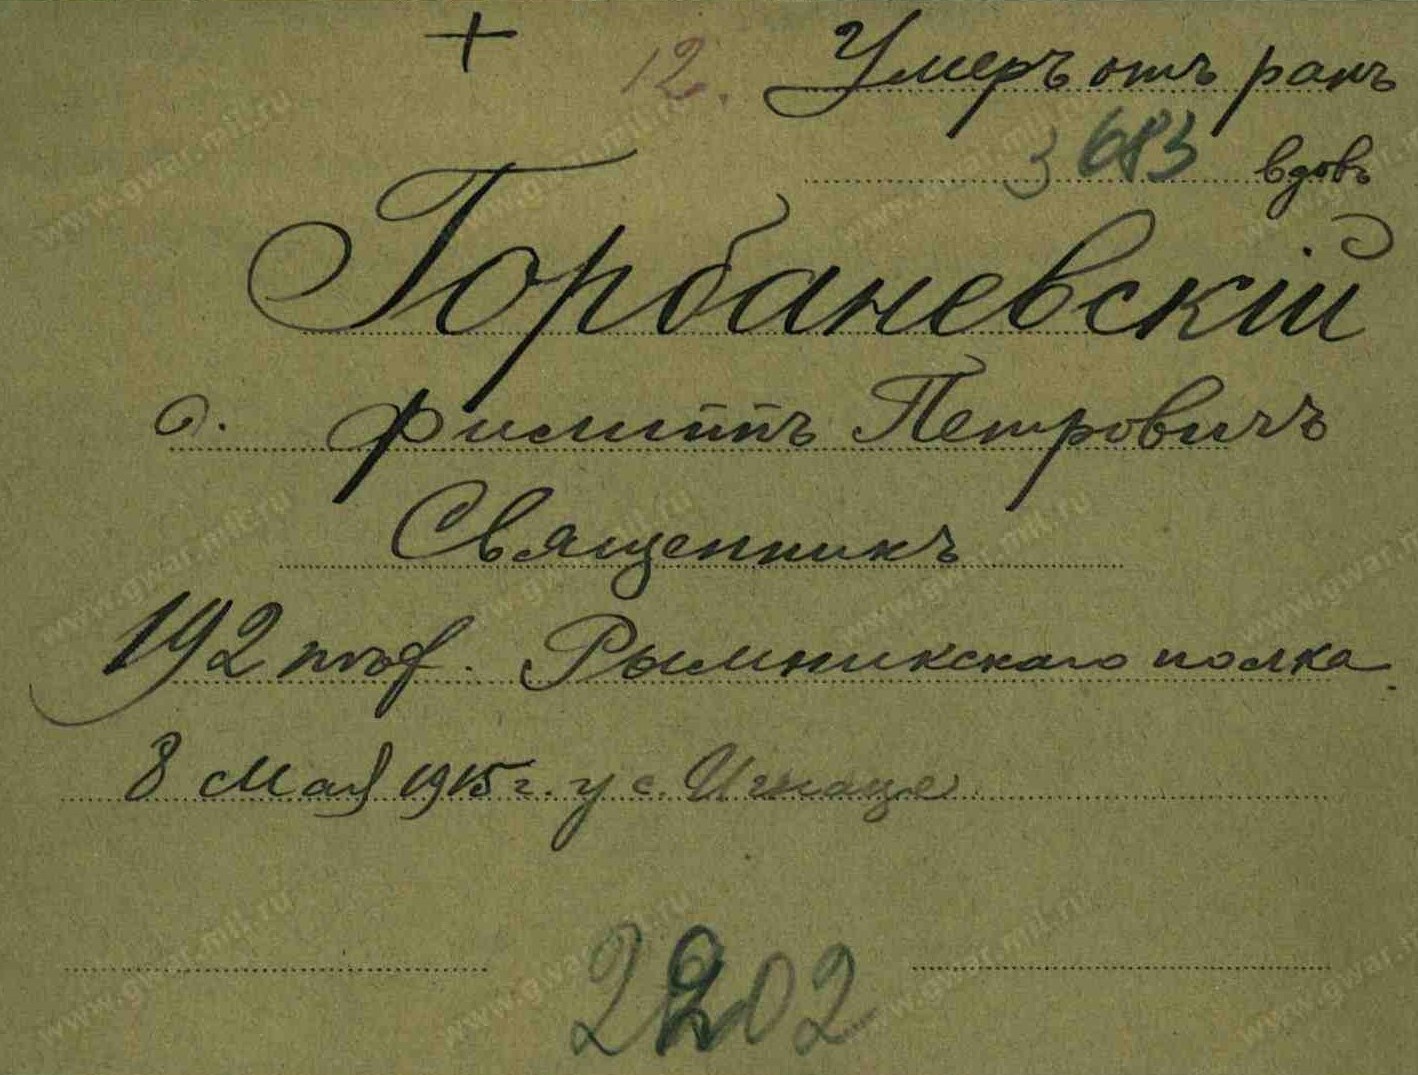 + 12. Умеръ отъ ранъ
3683 вдовъ
Горбаневскій
о. Филиппъ Петровичъ
Священникъ
192 пѣх. Рымникскаго полка.
8 Мая 1915 г. у с. Игнаце
2202
www.gwar.mil.ru